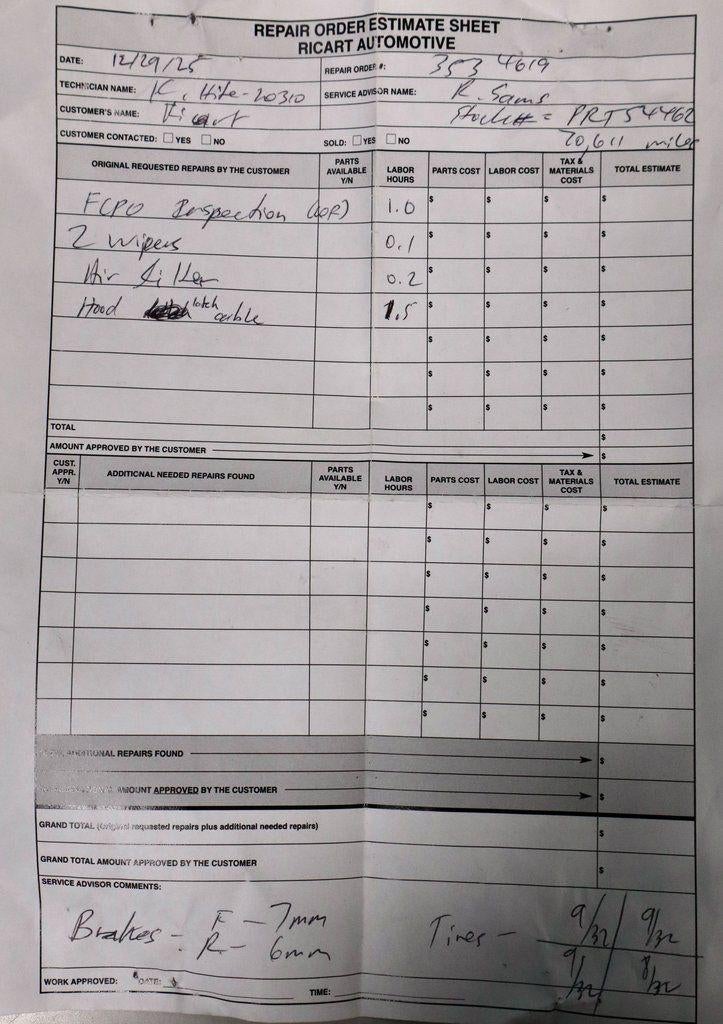 REPAIR ORDER ESTIMATE SHEET
RICART AUTOMOTIVE
DATE: 12/29/25 REPAIR ORDER #: 353 4619
TECHNICIAN NAME: K. Hite-20310 SERVICE ADVISOR NAME: R. Sams
CUSTOMER'S NAME: Ricart Stock# = PRT54462
CUSTOMER CONTACTED: YES NO SOLD: YES NO 70,611 miles
ORIGINAL REQUESTED REPAIRS BY THE CUSTOMER PARTS AVAILABLE Y/N LABOR HOURS PARTS COST LABOR COST TAX & MATERIALS COST TOTAL ESTIMATE
FCPO Inspection 1.0 $ $ $ $
2 wipers 0.1 $ $ $ $
Air filter 0.2 $ $ $ $
Hood latch cable 1.5 $ $ $ $
$ $ $ $
$ $ $ $
$ $ $ $
TOTAL $
AMOUNT APPROVED BY THE CUSTOMER $
CUST. APPR. Y/N ADDITIONAL NEEDED REPAIRS FOUND PARTS AVAILABLE Y/N LABOR HOURS PARTS COST LABOR COST TAX & MATERIALS COST TOTAL ESTIMATE
$ $ $ $
$ $ $ $
$ $ $ $
$ $ $ $
$ $ $ $
$ $ $ $
$ $ $ $
ADDITIONAL REPAIRS FOUND $
AMOUNT APPROVED BY THE CUSTOMER $
GRAND TOTAL (Original requested repairs plus additional needed repairs) $
GRAND TOTAL AMOUNT APPROVED BY THE CUSTOMER $
SERVICE ADVISOR COMMENTS:
Brakes - F - 7mm Tires - 9/32 9/32
R - 6mm 9/32 8/32
WORK APPROVED: DATE: TIME: